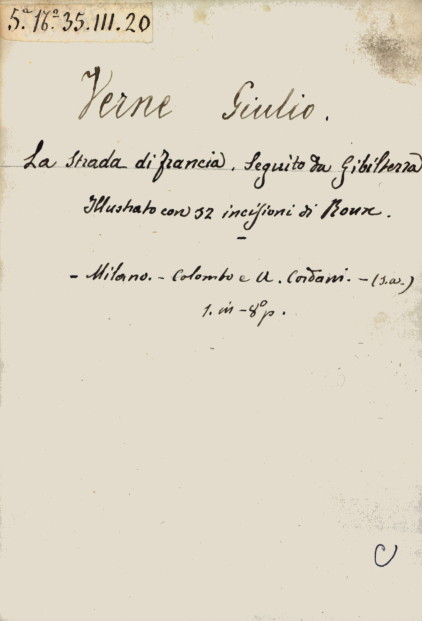 5.ª 16ª 35.III.20
Verne Giulio.
La Strada di Francia, Seguito da Gibilterra
Illustrato con 32 incisioni di Roux.
– Milano. – Colombo e A. Cordani. – (s.a.)
1. in – 8º p.
C